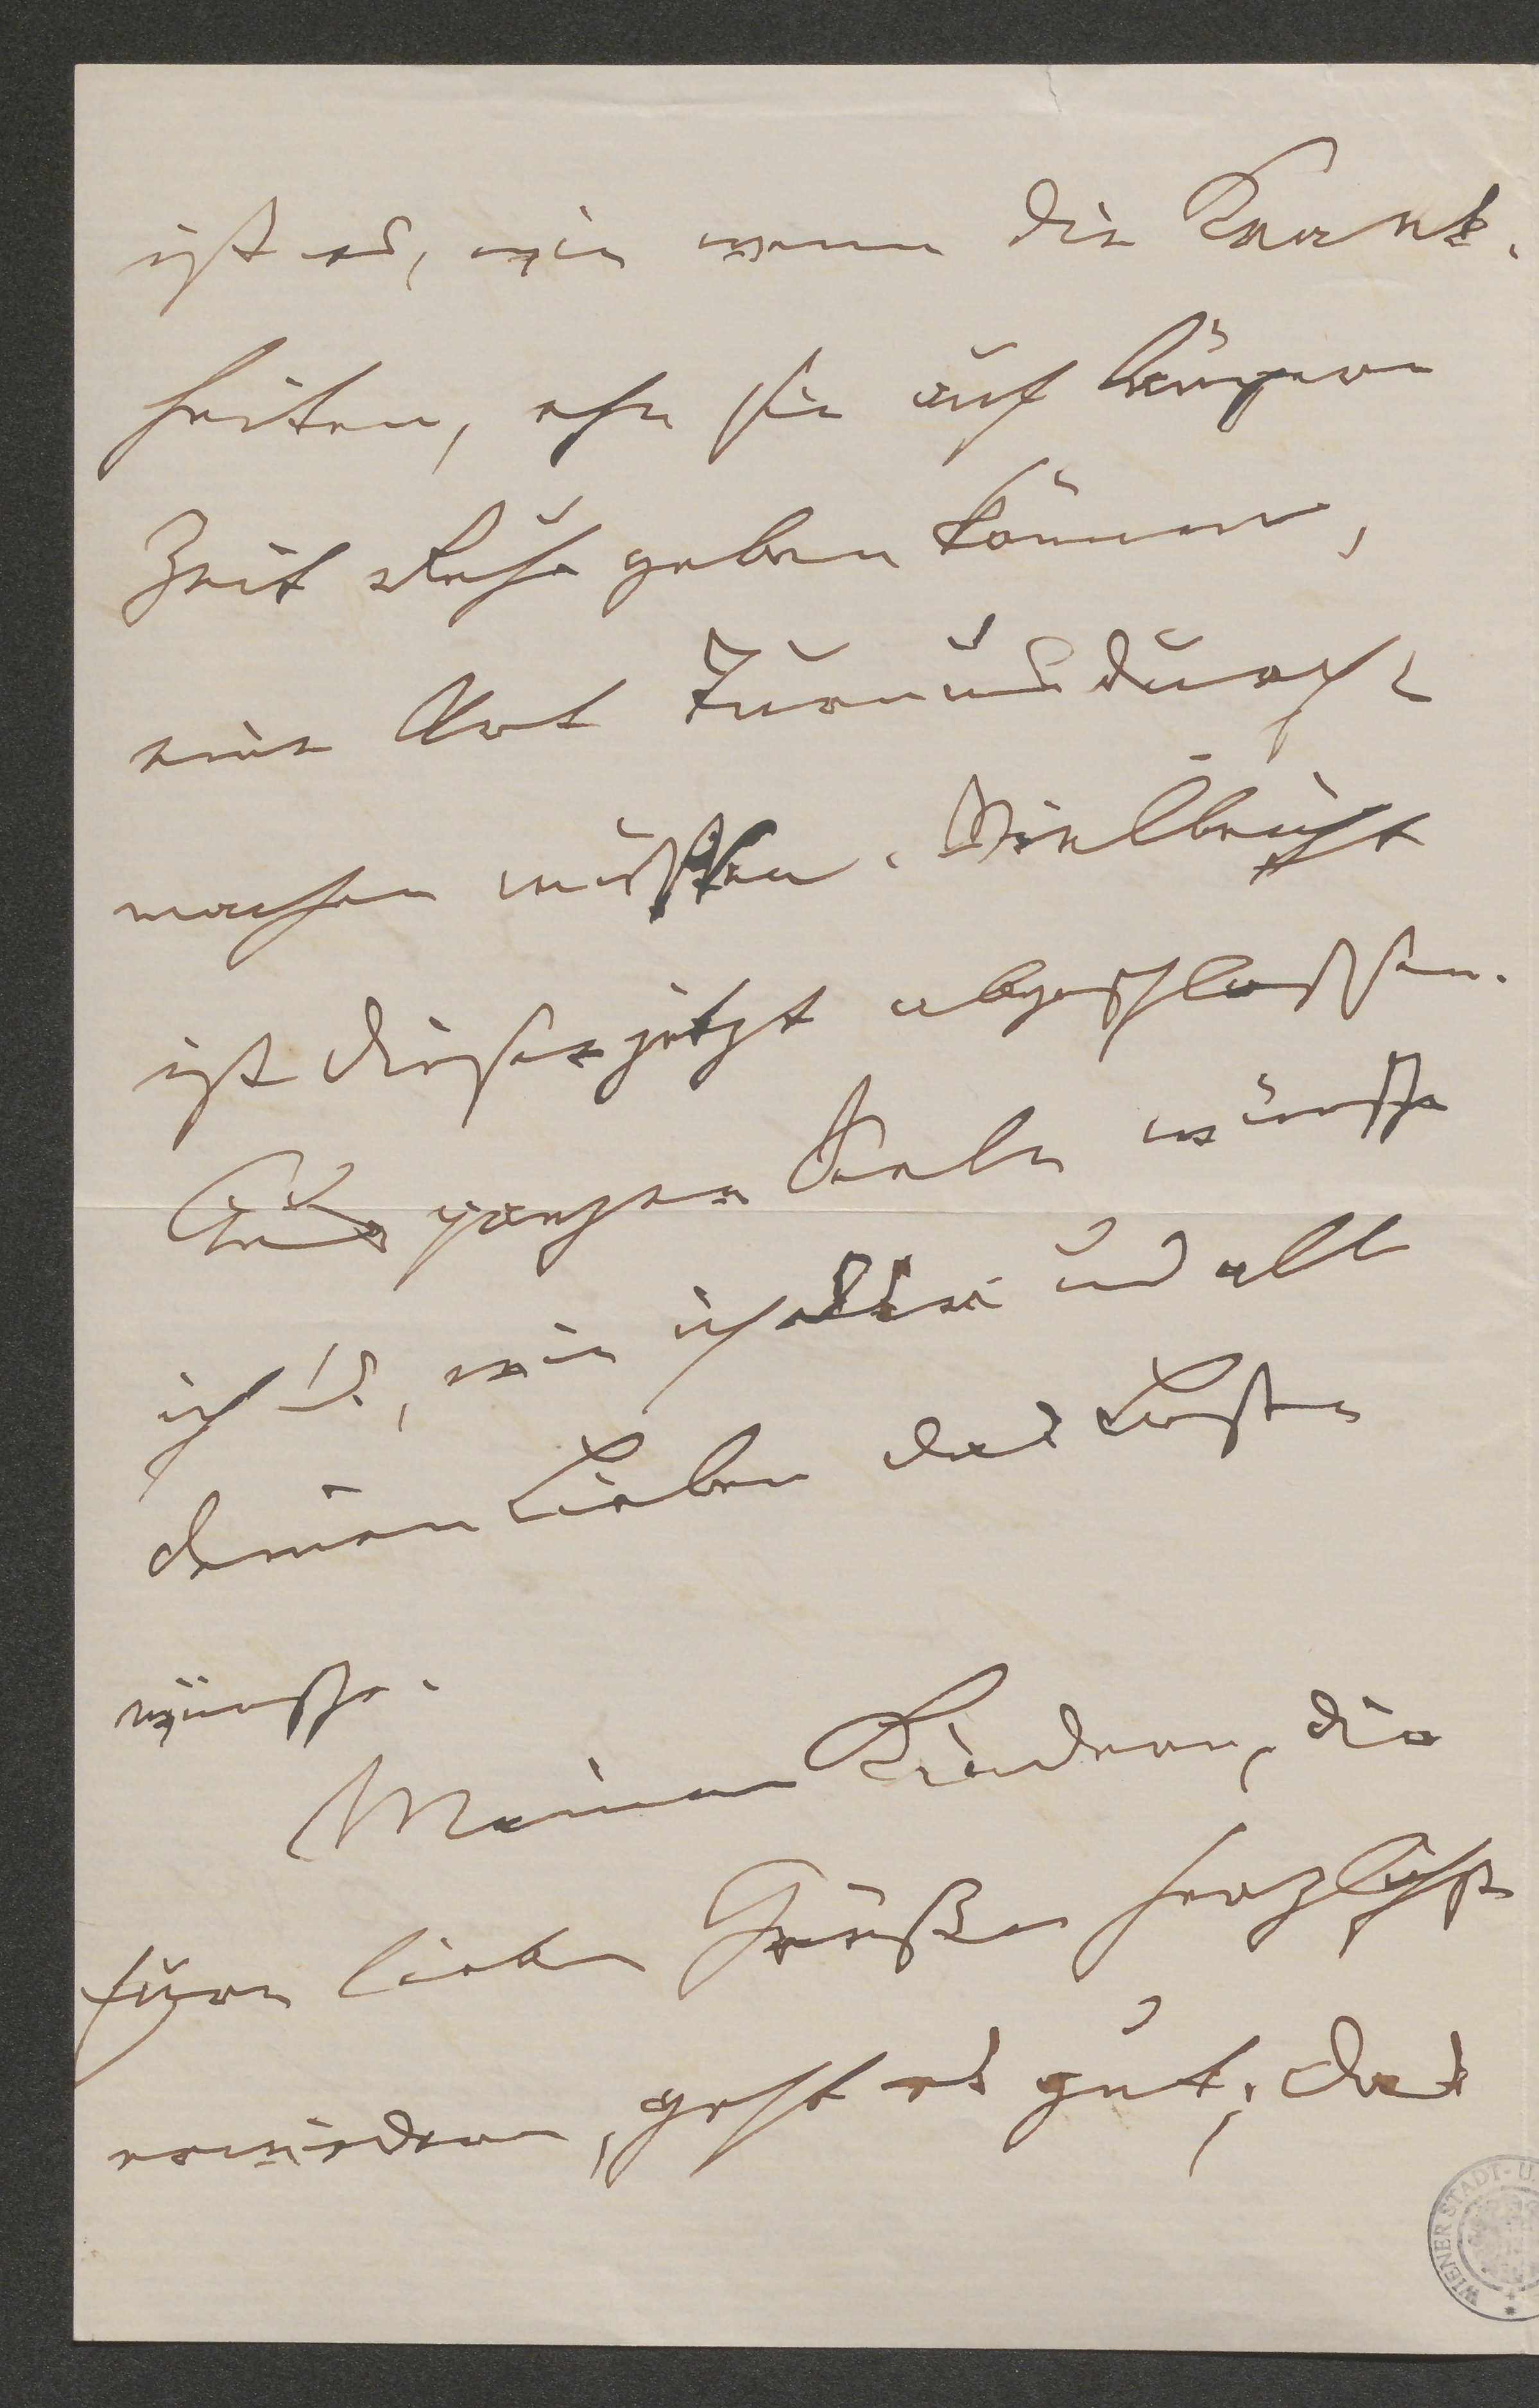 ist es, wie wenn die Krank-
heiten, ehe sie auf längere
Zeit Ruhe geben können,
eine Art Turnus durch-
machen müßten. Vielleicht
ist dieser jetzt abgeschlossen.
Aus ganzer Seele wünsche
ich es, wie ich und all
deinen Lieben das Beste
wünsche.
Meinen Kindern, die
Eure lieben Grüße herzlichst
erwiedern, geht es gut; das
WIENER STADT- U